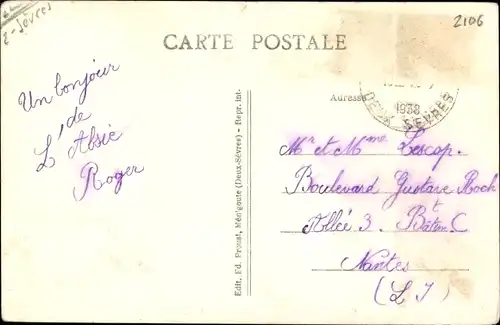 2-Sèvres
2106
CARTE POSTALE
Adresse
1938
DEUX SEVRES
Un bonjour
de
L'Absie
Roger
Edit. Ed. Proust, Ménigoute (Deux-Sèvres) - Repr. int.
Mr et Mme Lescop.
Boulevard Gustave Roch
Allée 3. Bâtim.t C
Nantes
(L I)